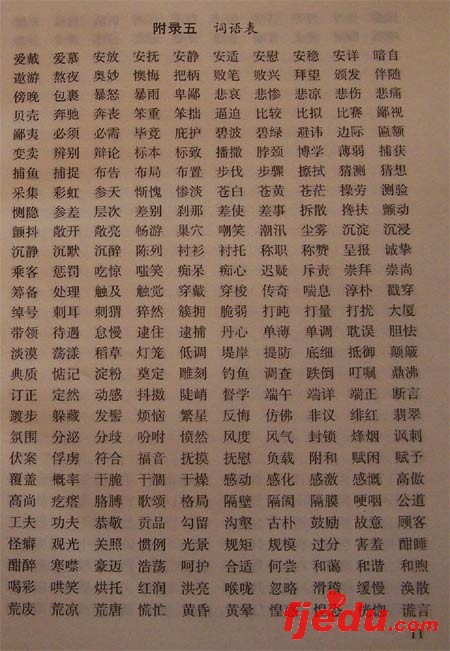 附录五 词语表
爱戴 爱慕 安放 安抚 安静 安适 安慰 安稳 安详 暗自
遨游 熬夜 奥妙 懊悔 把柄 败笔 败兴 拜望 颁发 伴随
傍晚 包裹 暴怒 暴雨 卑鄙 悲哀 悲惨 悲凉 悲伤 悲痛
贝壳 奔驰 奔丧 笨重 笨拙 逼迫 比较 比拟 比赛 鄙视
鄙夷 必须 必需 毕竟 庇护 碧波 碧绿 避讳 边际 匾额
变卖 辨别 辩论 标本 标致 播撒 脖颈 博学 薄弱 捕获
捕鱼 捕捉 布告 布局 布置 步伐 步骤 擦拭 猜测 猜想
采集 彩虹 参天 惭愧 惨淡 苍白 苍黄 苍茫 操劳 测验
恻隐 参差 层次 差别 刹那 差使 差事 拆散 搀扶 颤动
颤抖 敞开 敞亮 畅游 巢穴 嘲笑 潮汛 尘雾 沉淀 沉浸
沉静 沉默 沉醉 陈列 衬衫 衬托 称职 称赞 呈报 诚挚
乘客 惩罚 吃惊 嗤笑 痴呆 痴心 迟疑 斥责 崇拜 崇尚
筹备 处理 触及 触觉 穿戴 穿梭 传奇 喘息 淳朴 戳穿
绰号 刺耳 刺猬 猝然 簇拥 脆弱 打盹 打量 打扰 大厦
带领 待遇 怠慢 逮住 逮捕 丹心 单薄 单调 耽误 胆怯
淡漠 荡漾 稻草 灯笼 低调 堤岸 提防 底细 抵御 颠簸
典质 惦记 淀粉 奠定 雕刻 钓鱼 调查 跌倒 叮嘱 鼎沸
订正 定然 动感 抖擞 陡峭 督学 端午 端详 端正 断言
踱步 躲藏 发髻 烦恼 繁星 反悔 仿佛 非议 绯红 翡翠
氛围 分泌 分歧 吩咐 愤然 风度 风气 封锁 烽烟 讽刺
伏案 俘虏 符合 福音 抚摸 抚慰 负载 附和 赋闲 赋予
覆盖 概率 干脆 干涸 干燥 感动 感化 感激 感慨 高傲
高尚 疙瘩 胳膊 歌颂 格局 隔壁 隔阂 隔膜 哽咽 公道
工夫 功夫 恭敬 贡品 勾留 沟壑 古朴 鼓励 故意 顾客
怪癖 观光 关照 惯例 光景 规矩 规模 过分 害羞 酣睡
酣醉 寒噤 豪迈 浩荡 呵护 合适 何尝 和蔼 和谐 和煦
喝彩 哄笑 烘托 红润 洪亮 喉咙 忽略 滑稽 缓慢 涣散
荒废 荒凉 荒唐 慌忙 黄昏 黄晕 恍惚 谎言
fjedu.com
11